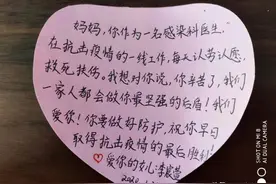 妈妈，你作为一名感染科医生，
在抗击疫情的一线工作，每天认劳认愿，
救死扶伤。我想对你说，你辛苦了，我们
一家人都会做你最坚强的后盾！我们
爱你！你要做好防护，祝你早日
取得抗击疫情的最后胜利！
爱你的女儿
SHOT ON MI 8
AI DUAL CAMERA